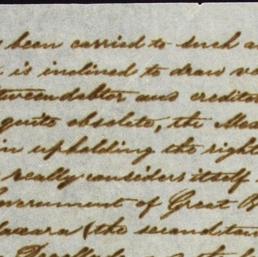 been carried to such a
is inclined to draw
between debtor and creditor
quite obsolete, the
in upholding the right
really considers itself
Government of Great B
(the second